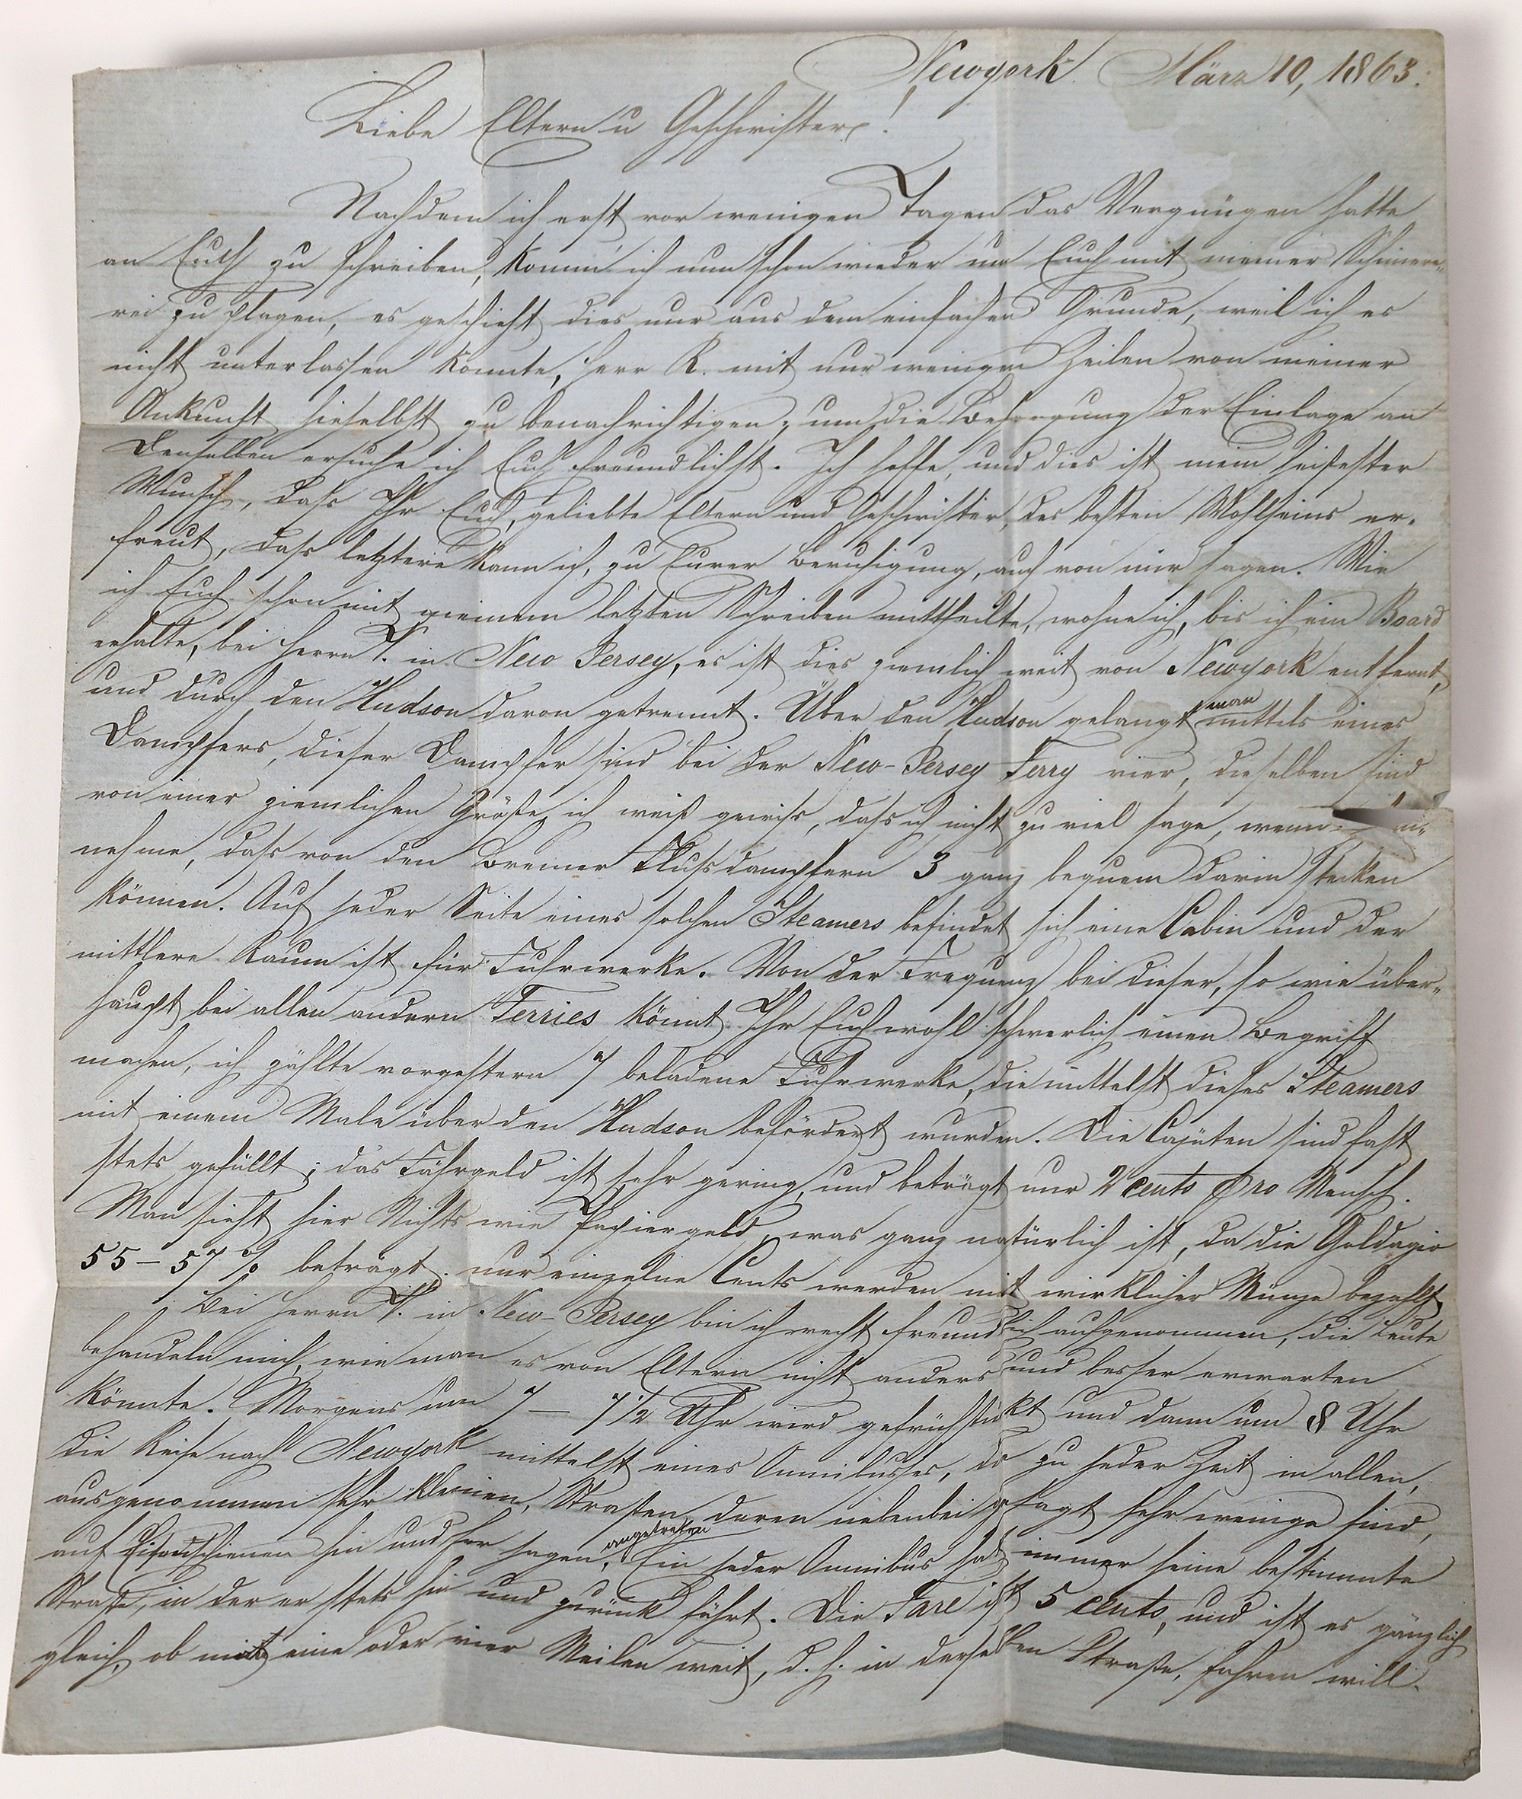 Newyork März 10, 1863.
Liebe Eltern u Geschwister!
Nachdem ich erst vor wenigen Tagen das Vergnügen hatte
an Euch zu schreiben, komm' ich nun schon wieder um Euch mit meiner Schmiere-
rei zu plagen, es geschieht dies nur aus dem einfachen Grunde, weil ich es
nicht unterlassen konnte, Herr R. mit nur wenigen Zeilen von meiner
Ankunft hieselbst zu benachrichtigen; um die Besorgung der Einlage an
denselben ersuche ich Euch freundlichst. Ich hoffe, und dies ist mein heißester
Wunsch, dass Ihr Euch, geliebte Eltern und Geschwister, des besten Wohlseins er-
freut, dass letztere kann ich, zu Eurer Beruhigung, auch von mir sagen. Wie
ich Euch schon mit meinem letzten Schreiben mittheilte, wohne ich, bis ich ein Board
erhalte, bei Herrn T. in New Jersey, es ist dies ziemlich weit von Newyork entfernt,
und durch den Hudson davon getrennt. Über den Hudson gelangt man mittels eines
Dampfers, dieser Dampfer sind bei der New-Jersey Ferry vier, dieselben sind
von einer ziemlichen Größe, ich weiß gewiss, dass ich nicht zu viel sage, wenn
nehme, dass von den Bremer Flussdampfern 3 ganz bequem darin stecken
können. Auf jeder Seite eines solchen Steamers befindet sich eine Cabin und der
mittlere Raum ist für Fuhrwerke. Von der Frequenz bei dieser, so wie über-
haupt bei allen andern Ferries könnt Ihr Euch wohl schwerlich einen Begriff
machen, ich zählte vorgestern 7 beladene Fuhrwerke, die mittelst dieses Steamers
mit einem Male über den Hudson befördert wurden. Die Cajüten sind fast
stets gefüllt; das Fährgeld ist sehr gering, und beträgt nur 2 cents pro Mensch.
Man sieht hier Nichts wie Papiergeld, was ganz natürlich ist, da die Goldagio
55–57 % beträgt. nur einzelne Cents werden mit wirklicher Münze bezahlt,
Bei Herrn T. in New-Jersey bin ich recht freundlich aufgenommen, die Leute
behandeln mich, wie man es von Eltern nicht anders und besser erwarten
könnte. Morgens um 7–7½ Uhr wird gefrühstückt und dann um 8 Uhr
die Reise nach Newyork mittelst eines Omnibusses, die zu jeder Zeit in allen,
ausgenommen sehr kleinen, Straßen, deren nebenbei gesagt sehr wenige sind,
auf Eisenschienen hin und her jagen, angetreten. Ein jeder Omnibus hat immer seine bestimmte
Straße, in der er stets hin und zurück fährt. Die Fare ist 5 cents, und ist es gänzlich
gleich, ob mit eine oder vier Meilen weit, d. h. in derselben Straße, fahren will.